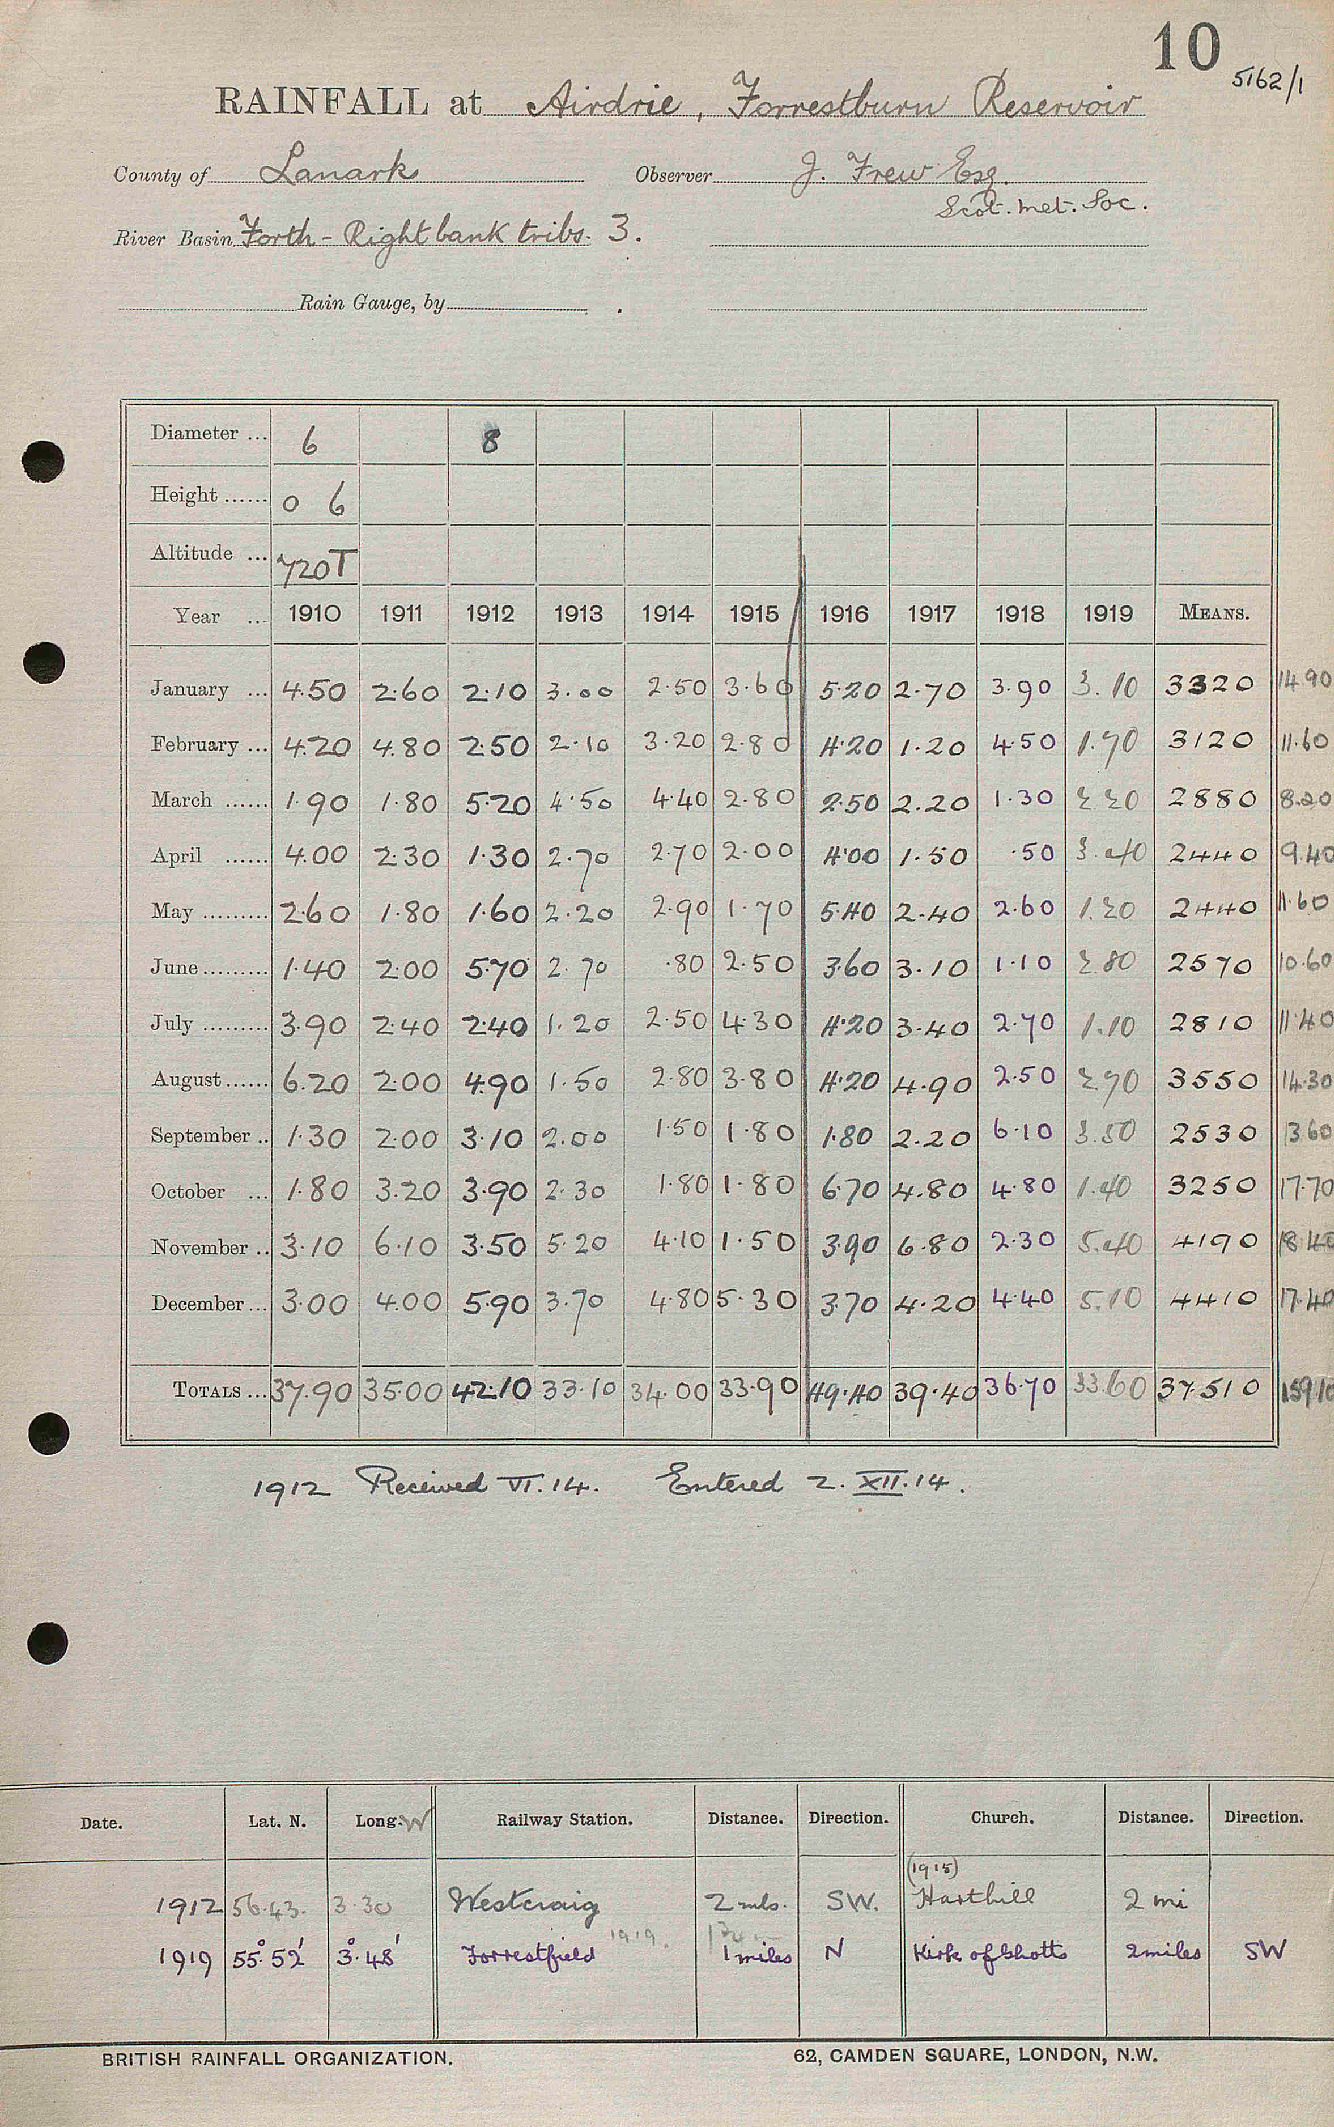 10
5162/1
RAINFALL at Airdrie, Forrestburn Reservoir
County of Lanark Observer J. Frew Esq.
Scot. Met. Soc.
River Basin Forth - Right bank tribs. 3.
Rain Gauge, by
Diameter ... 6 8
Height ...... 0 6
Altitude ... 720T
Year ... 1910 1911 1912 1913 1914 1915 1916 1917 1918 1919 MEANS.
January ... 4.50 2.60 2.10 3.00 2.50 3.60 5.20 2.70 3.90 3.10 3320 14.90
February ... 4.20 4.80 2.50 2.10 3.20 2.80 4.20 1.20 4.50 1.70 3120 11.60
March ...... 1.90 1.80 5.20 4.50 4.40 2.80 2.50 2.20 1.30 2.20 2880 8.20
April ...... 4.00 2.30 1.30 2.70 2.70 2.00 4.00 1.50 .50 3.40 2440 9.40
May ......... 2.60 1.80 1.60 2.20 2.90 1.70 5.40 2.40 2.60 1.20 2440 11.60
June ......... 1.40 2.00 5.70 2.70 .80 2.50 3.60 3.10 1.10 2.80 2570 10.60
July ......... 3.90 2.40 2.40 1.20 2.50 4.30 4.20 3.40 2.70 1.10 2810 11.40
August ...... 6.20 2.00 4.90 1.50 2.80 3.80 4.20 4.90 2.50 2.70 3550 14.30
September .. 1.30 2.00 3.10 2.00 1.50 1.80 1.80 2.20 6.10 3.50 2530 13.60
October ... 1.80 3.20 3.90 2.30 1.80 1.80 6.70 4.80 4.80 1.40 3250 17.70
November .. 3.10 6.10 3.50 5.20 4.10 1.50 3.90 6.80 2.30 5.40 4190 18.40
December ... 3.00 4.00 5.90 3.70 4.80 5.30 3.70 4.20 4.40 5.10 4410 17.40
TOTALS ... 37.90 35.00 42.10 33.10 34.00 33.90 49.40 39.40 36.70 33.60 37.510 159.10
1912 Received VI.14. Entered 2.XII.14.
Date. Lat. N. Long. W Railway Station. Distance. Direction. Church. Distance. Direction.
(1915)
1912 56.43. 3.30 Westcraig 2 mls. SW. Harthill 2 mi
1919.
1919 55° 52' 3° 48' Forrestfield 1 miles N Kirk of Shotts 2 miles SW
BRITISH RAINFALL ORGANIZATION. 62, CAMDEN SQUARE, LONDON, N.W.